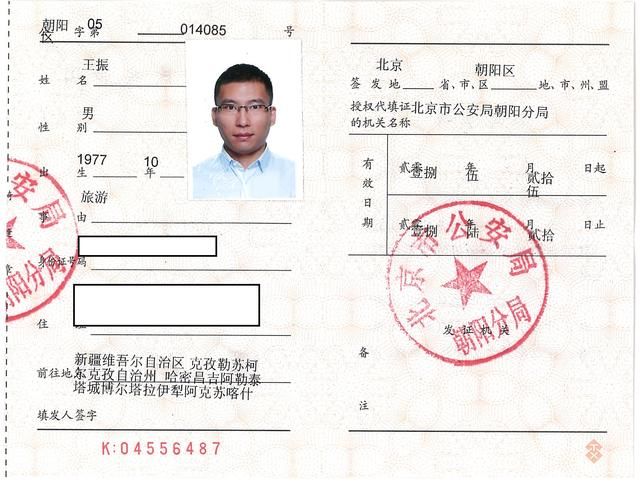 朝阳区 公 字第 05 014085 号
姓名 王振
性别 男
出生 1977 年 10
事由 旅游
身份证号码
住
前往地 新疆维吾尔自治区 克孜勒苏柯
尔克孜自治州 哈密昌吉阿勒泰
塔城博尔塔拉伊犁阿克苏喀什
填发人签字
K:04556487
北京 朝阳区
签发地 省、市、区 地、市、州、盟
授权代填证 北京市公安局朝阳分局
的机关名称
有效日期
贰零壹捌 年 伍 月 贰拾伍 日起
贰零壹捌 年 陆 月 贰拾 日止
北京市公安局
朝阳分局
发证机关
备
注
安局
朝阳分局